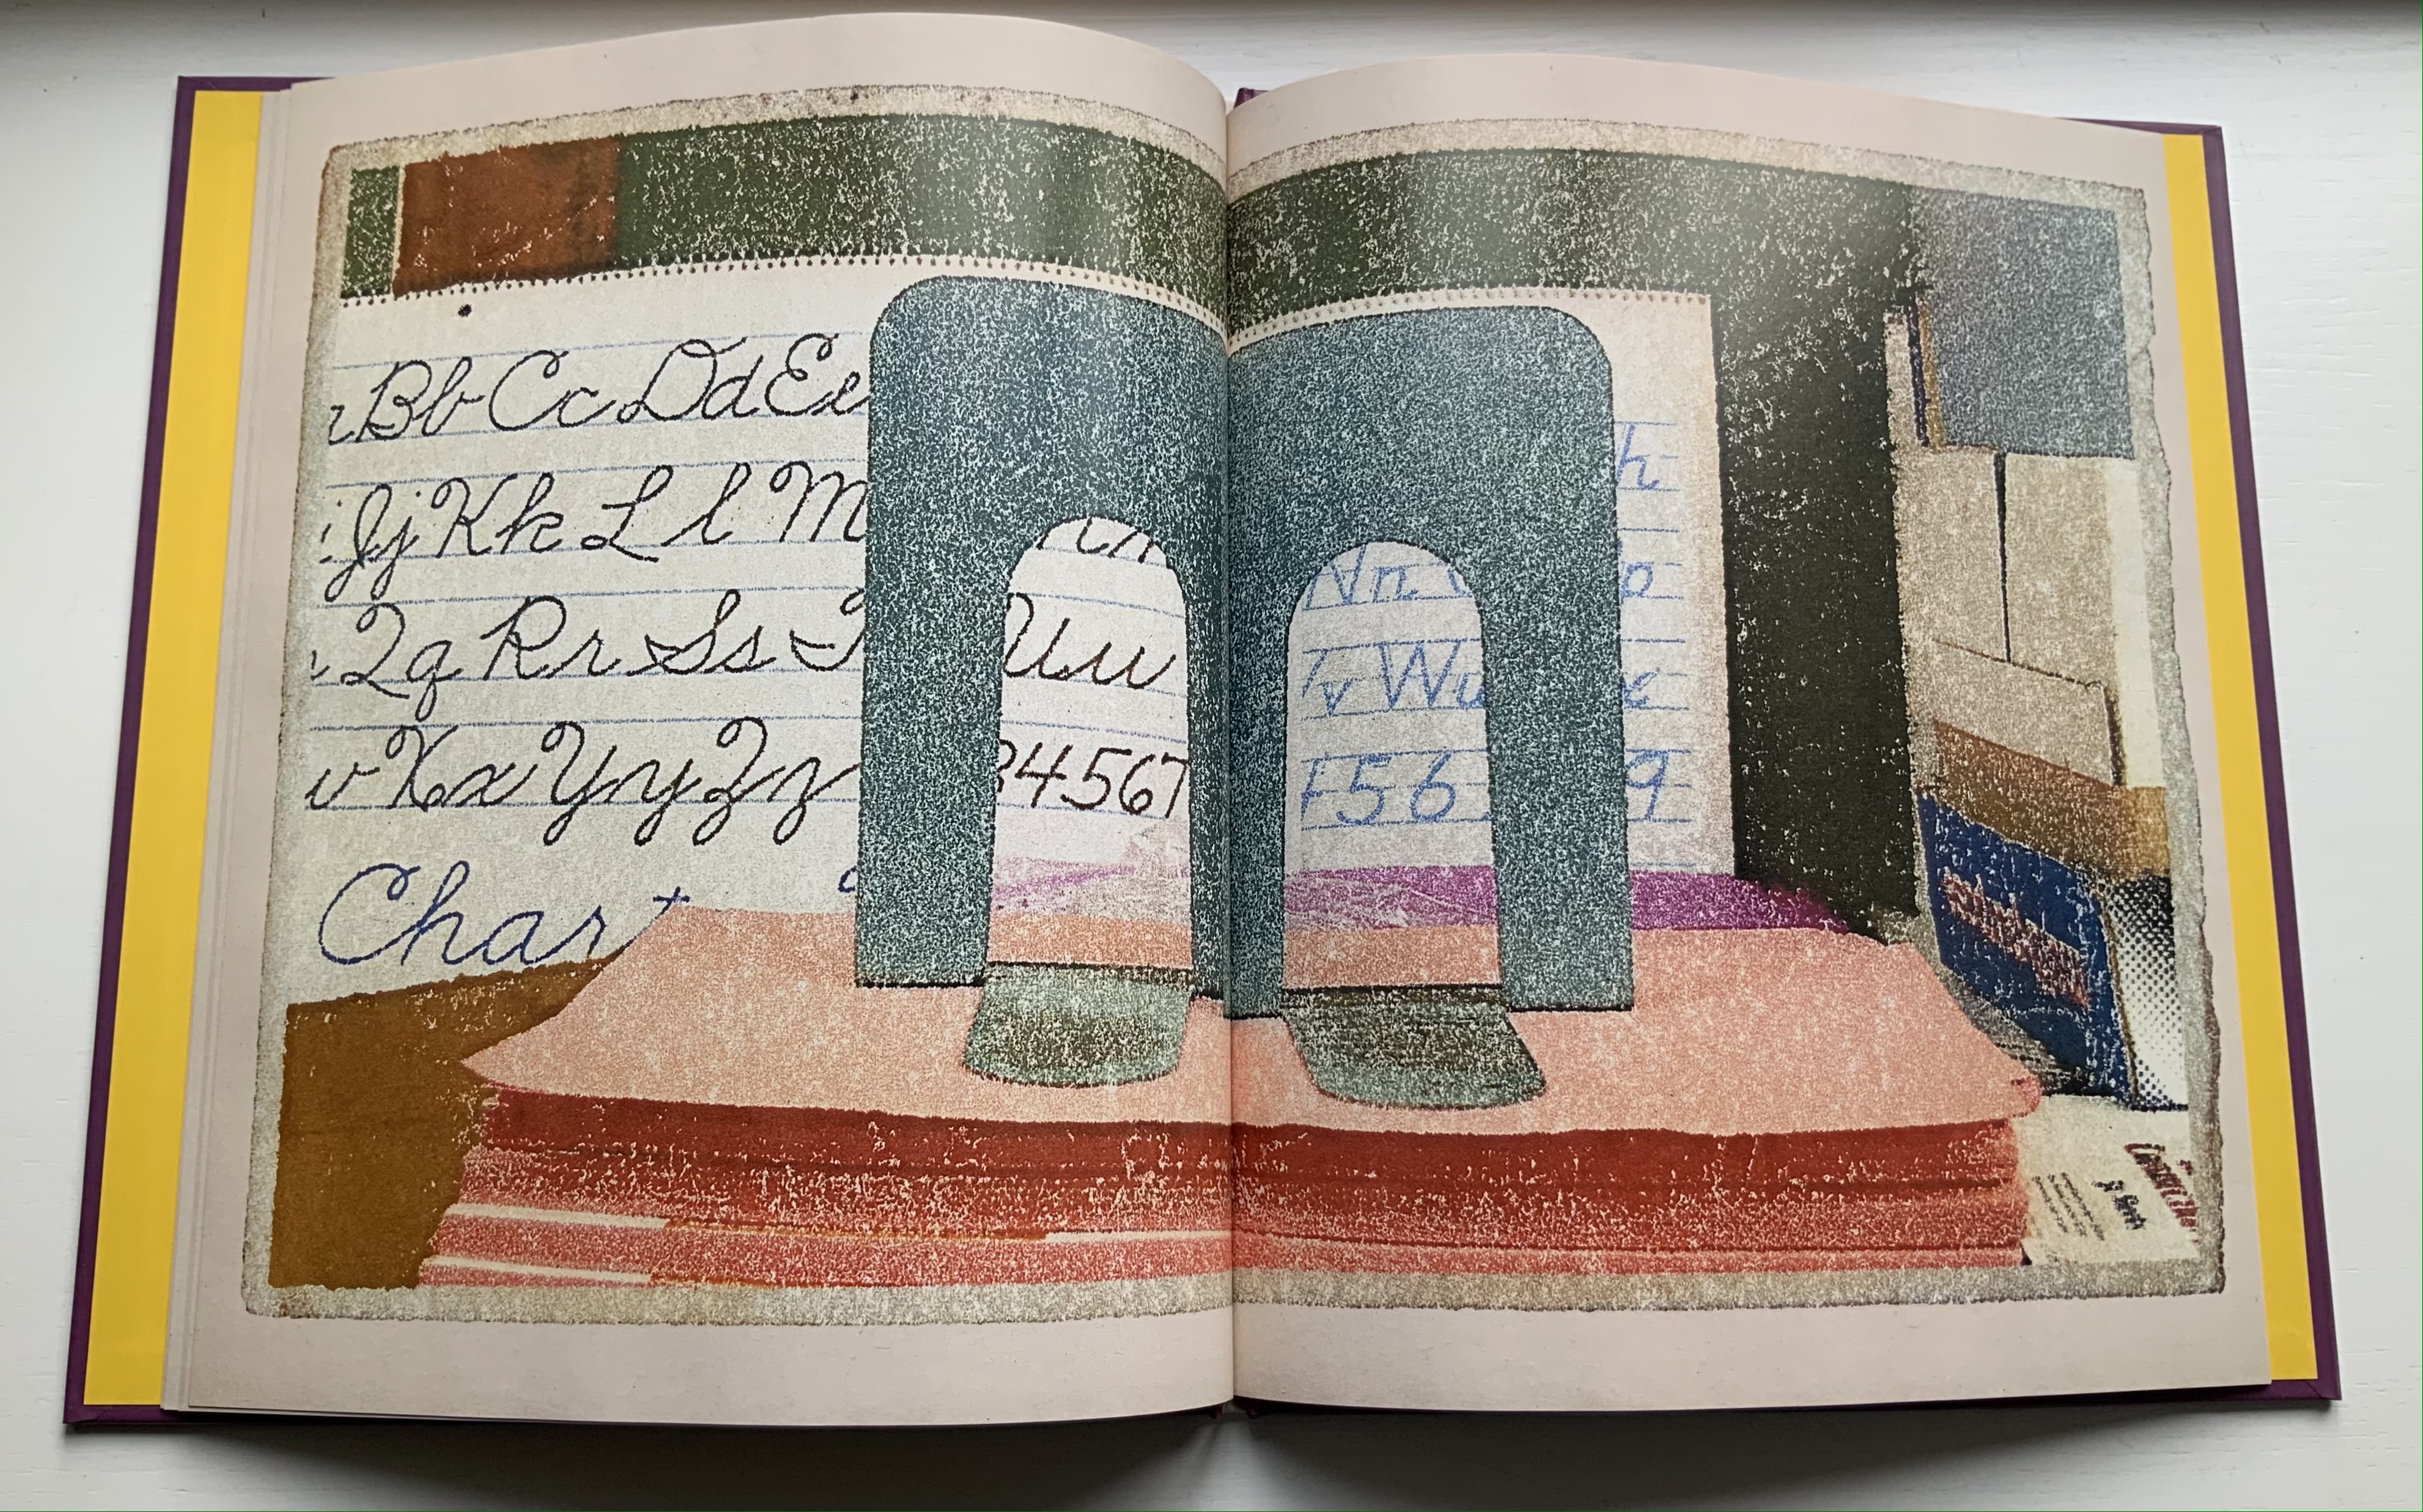 Bb Cc Dd Ee
Jj Kk L l M
Qq Rr Ss T Uu
v Xx Yy Zz 34567
Chart
h
Nn p
v Wu x
56 9